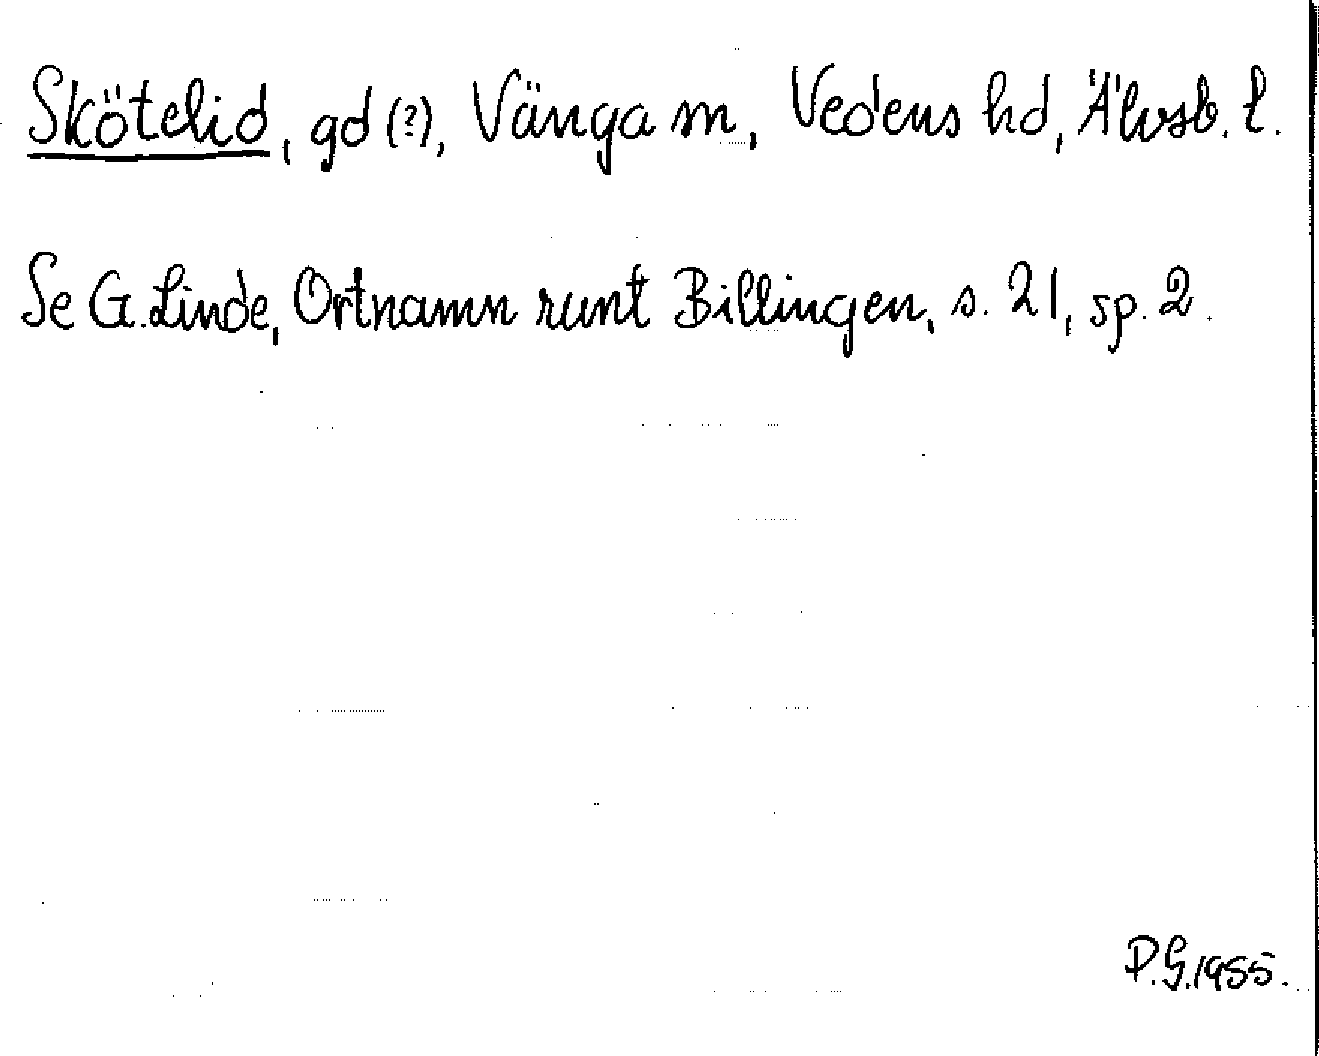 Skötelid, gd (?), Vänga sn, Vedens hd, Älvsb. l.
Se G. Linde, Ortnamn runt Billingen, s. 21, sp. 2.
P.G. 1955.